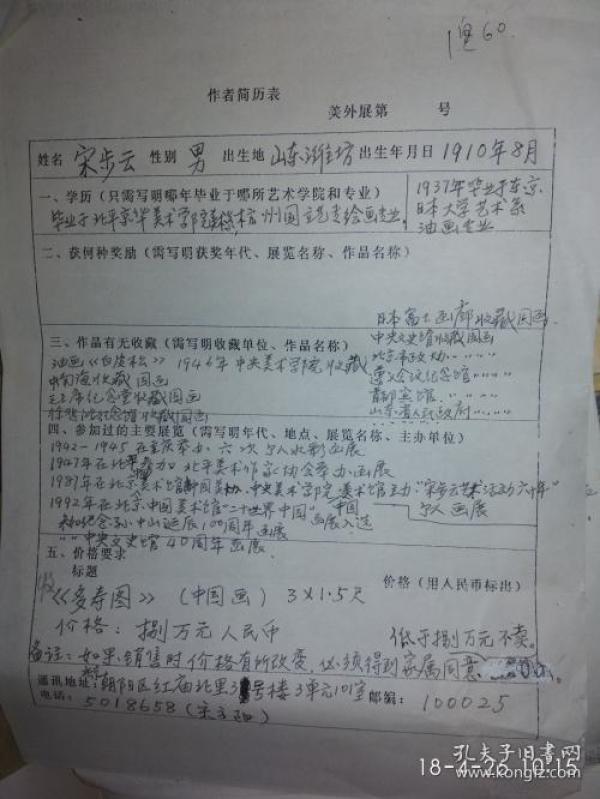 作者简历表
美外展第 号
姓名 宋步云 性别 男 出生地 山东潍坊 出生年月日 1910年8月
一、学历（只需写明哪年毕业于哪所艺术学院和专业）
毕业于北平京华美术学院 杭州国立艺专绘画专业,
1937年毕业于东京
日本大学艺术系
油画专业
二、获何种奖励（需写明获奖年代、展览名称、作品名称）
日本富士画廊收藏国画
三、作品有无收藏（需写明收藏单位、作品名称）
中央文史馆收藏国画
油画《白皮松》1946年中央美术学院收藏
北京市政协〃〃〃〃
中南海收藏国画
遵义会议纪念馆〃〃〃〃
毛主席纪念堂收藏国画
首都宾馆〃〃〃〃
徐悲鸿纪念馆收藏国画
山东省人民政府〃〃〃〃
四、参加过的主要展览（需写明年代、地点、展览名称、主办单位）
1942-1945在重庆举办六次个人水彩画展
1947年在北平参加北平美术作家协会举办画展
1989年在北京中国美术馆 中国美协、中央美术学院、美术馆主办"宋步云艺术活动六十年"个人画展
1992年在北京中国美术馆"二十世界中国"中国画展入选
纪念孙中山诞辰100周年画展
〃〃中央文史馆40周年画展
五、价格要求
标题 价格（用人民币标出）
《多寿图》（中国画）3×1.5尺
价格：捌万元人民币 低于捌万元不卖。
备注：如果销售时价格有所改变，必须得到家属同意
通讯地址：朝阳区红庙北里3号楼3单元101室 邮编：100025
电话：5018658（宋 ）
18-4-26 10:15
孔夫子旧书网
www.kongfz.com